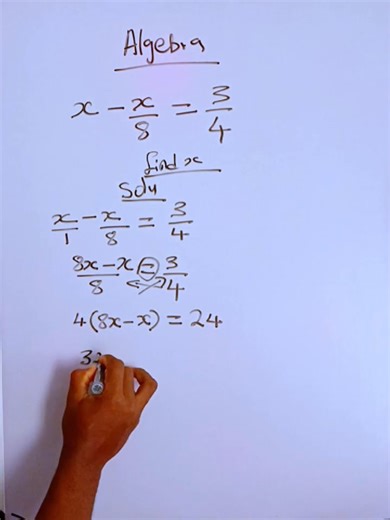 Algebra
x - x/8 = 3/4
find x
Soln
x/1 - x/8 = 3/4
8x - x/8 = 3/4
4(8x - x) = 24
32